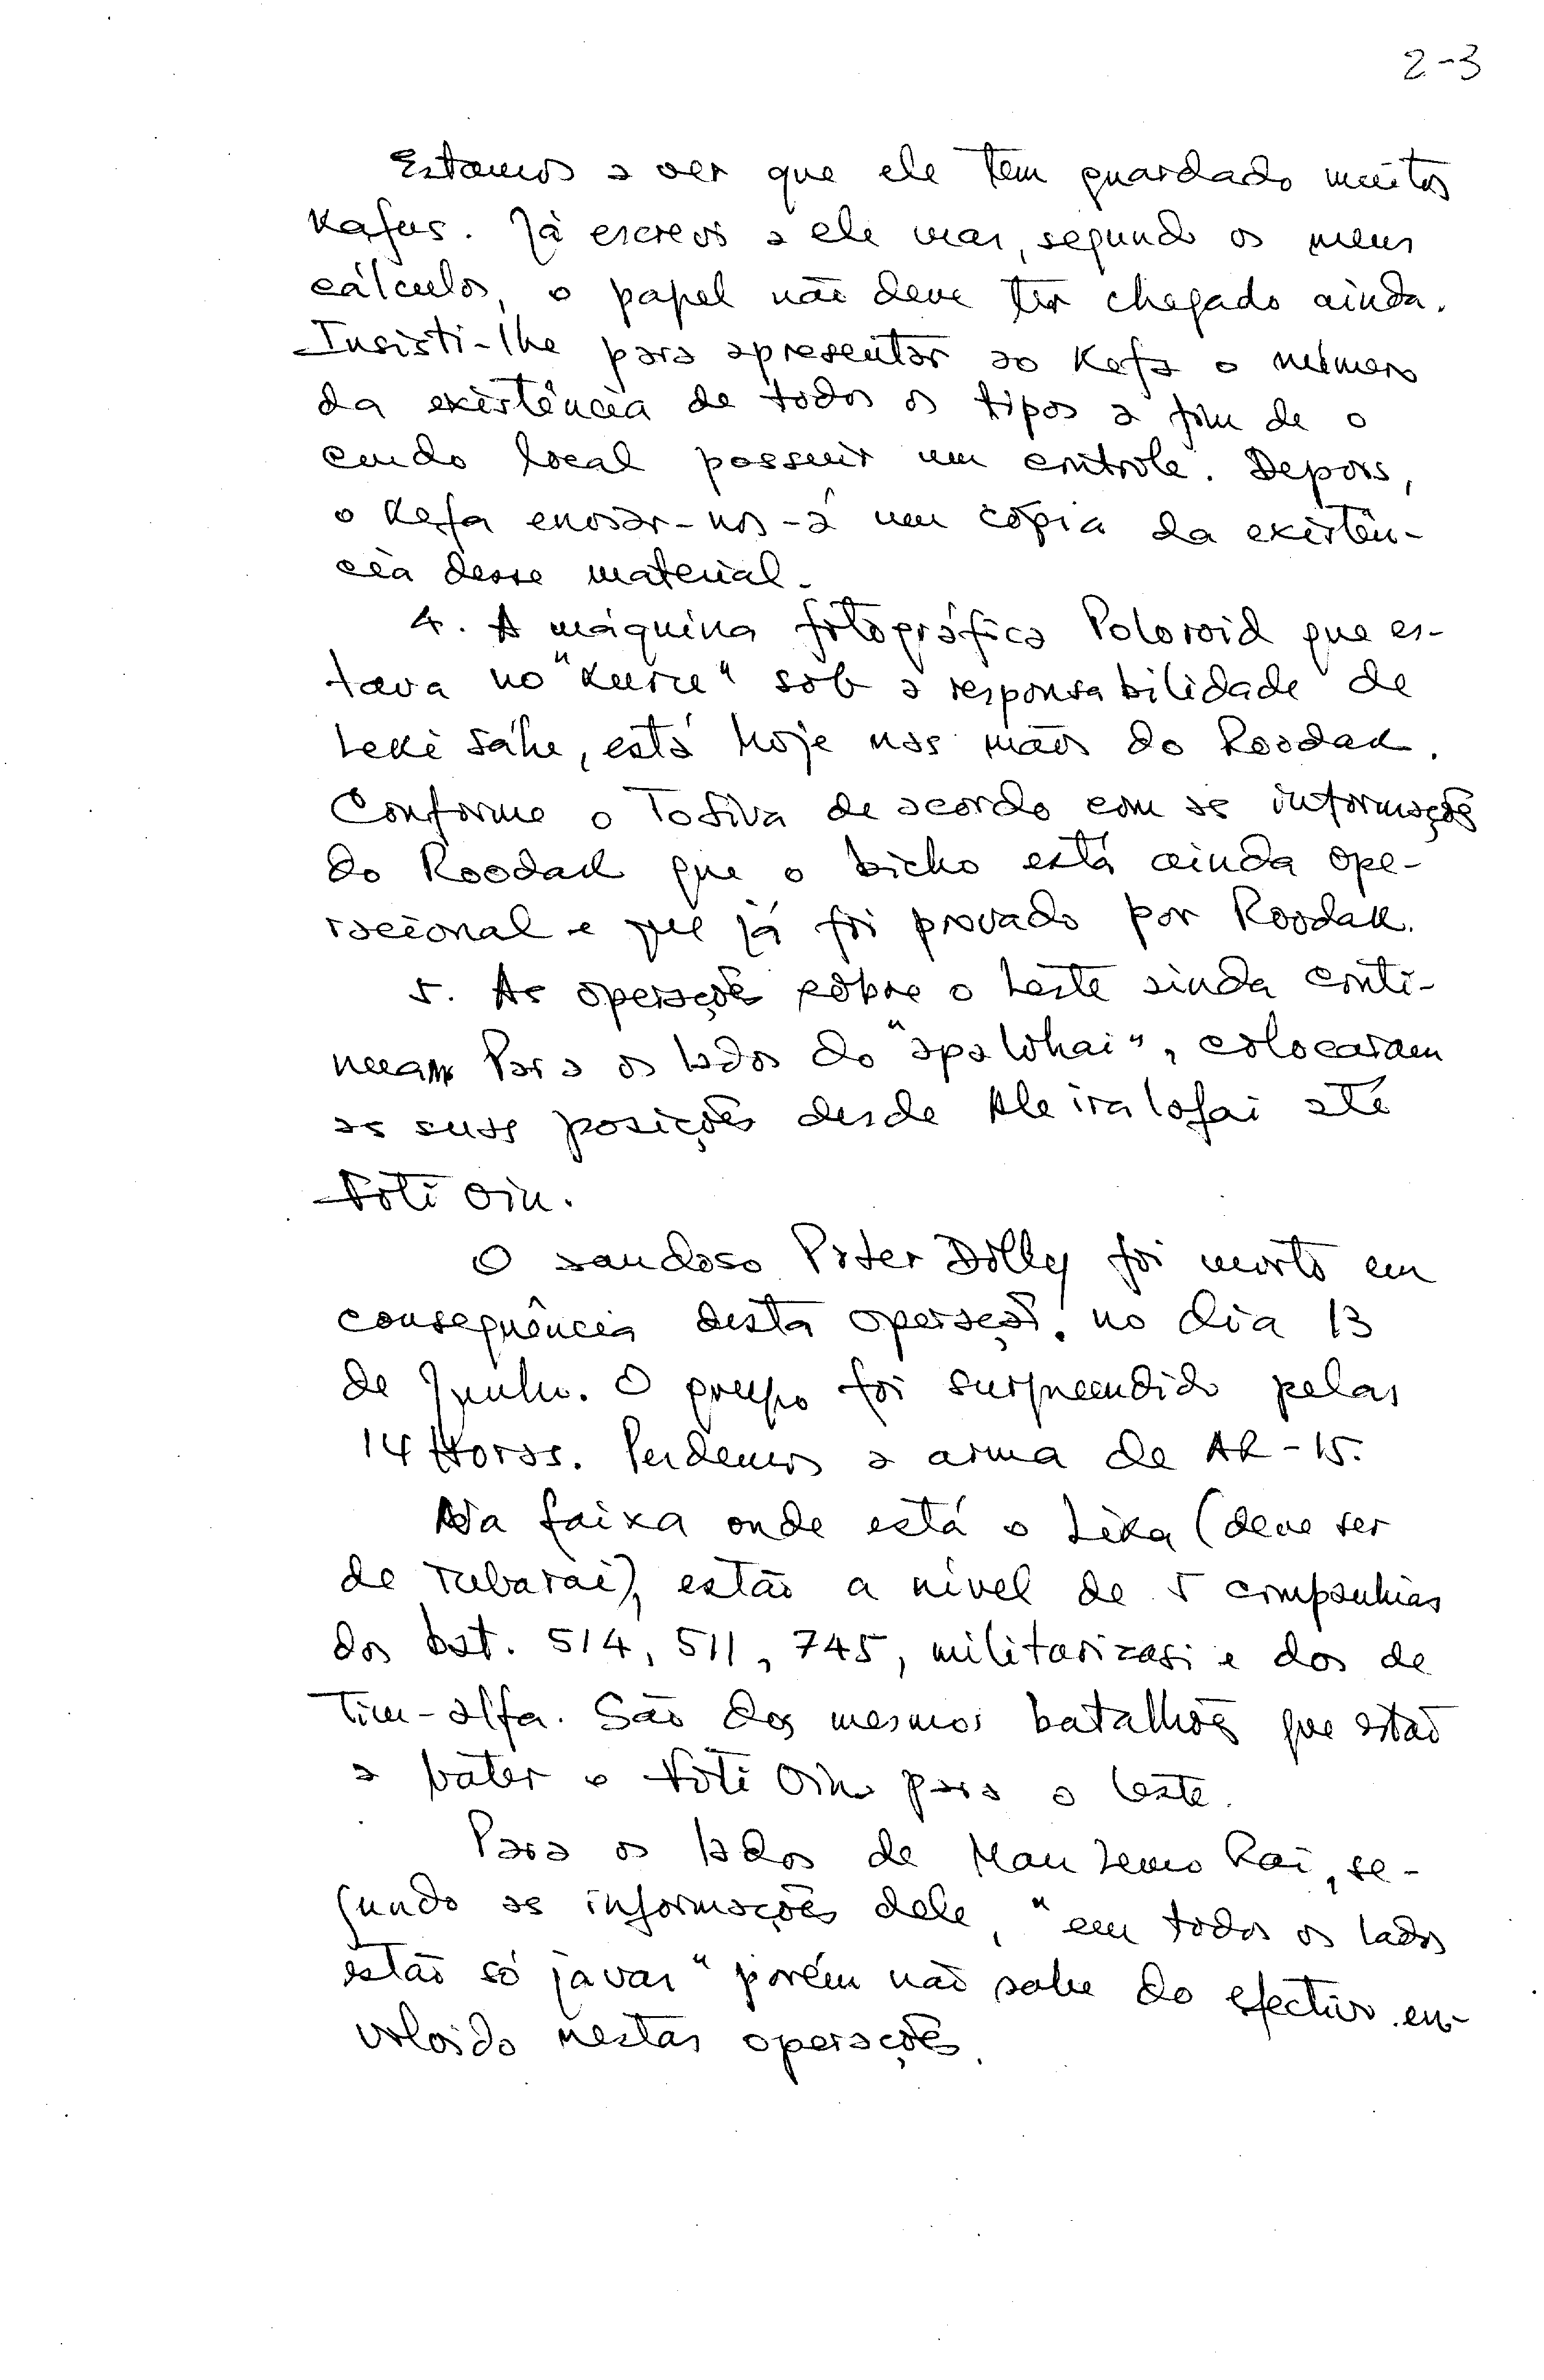 2-3
Estamos a ver que ele tem guardado muitos
Kafus. Já escrevi a ele mas, segundo os meus
cálculos, o papel não deve ter chegado ainda.
Insisti-lhe para apresentar ao Kefa o número
da existência de todos os tipos a fim de o
cmdo local possuir um controle. Depois,
o Kefa enviar-nos-á um cópia da existên-
cia desse material.
4. A máquina fotográfica Poloroid que es-
tava no "Kuru" sob a responsabilidade de
Leki Sáhe, está hoje nas mãos do Roodak.
Conforme o Tofiva de acordo com as informações
do Roodak que o bicho está ainda ope-
racional e que já foi provado por Roodak.
5. As operações sobre o Leste ainda conti-
nuam Para os lados do "apa lohai", colocaram
as suas posições desde Aleiralofai até
Foti Oin.
O saudoso Piter Dolly foi morto em
consequência desta operação, no dia 13
de Junho. O grupo foi surpreendido pelas
14 Horas. Perdemos a arma de AR-15.
Na faixa onde está o Lika (deve ser
de Tubarai), estão a nível de 5 companhias
dos bat. 514, 511, 745, militarizasi e dos de
Tim-alfa. São dos mesmos batalhões que estão
a bater o Foti Oin para o leste.
Para os lados de Mau Lemo Rai, se-
gundo as informações dele, "em todos os lados
estão só javas" porém não sabe do efectivo en-
volvido nestas operações.